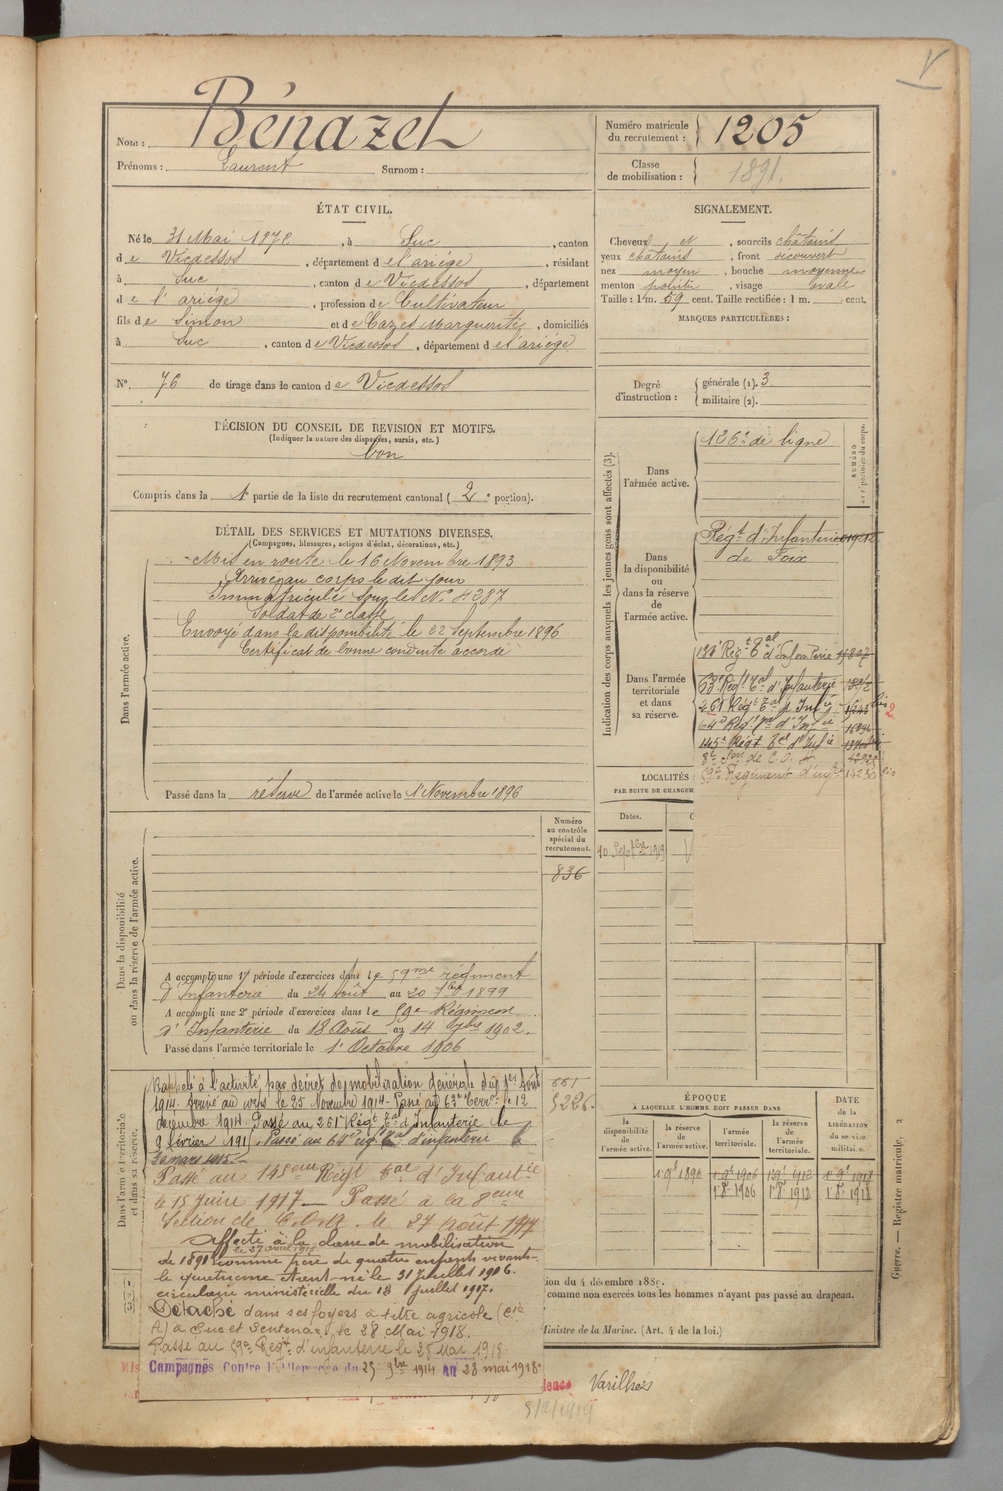 V
Nom : Bénazet
Prénoms : Laurent Surnom :
Numéro matricule du recrutement : 1205
Classe de mobilisation : 1891.
ÉTAT CIVIL.
Né le 31 Mai 1872, à Suc, canton
de Vicdessos, département de l'ariège, résidant
à Suc, canton de Vicdessos, département
de l'ariége, profession de Cultivateur
fils de Simon et de Cazes Marguerite, domiciliés
à Suc, canton de Vicdessos, département de l'ariége
N° 76 de tirage dans le canton de Vicdessos
SIGNALEMENT.
Cheveux et, sourcils châtains
yeux châtains, front découvert
nez moyen, bouche moyenne
menton pointu, visage ovale
Taille : 1 m. 59 cent. Taille rectifiée : 1 m. cent.
MARQUES PARTICULIÈRES :
Degré d'instruction : générale (1). 3
militaire (2).
DÉCISION DU CONSEIL DE REVISION ET MOTIFS.
(Indiquer la nature des dispenses, sursis, etc.)
bon
Compris dans la 1e partie de la liste du recrutement cantonal (2e portion).
DÉTAIL DES SERVICES ET MUTATIONS DIVERSES.
(Campagnes, blessures, actions d'éclat, décorations, etc.)
Dans l'armée active.
Mis en route le 16 Novembre 1893
Arrivé au corps le dit jour
Immatriculé sous le N° 4287
Soldat de 2e classe
Envoyé dans la disponibilité le 22 Septembre 1896
Certificat de bonne conduite accordé
Passé dans la réserve de l'armée active le 1r Novembre 1896
Indication des corps auxquels les jeunes gens sont affectés (3).
NUMÉRO
Dans l'armée active.
126e de ligne
Dans la disponibilité ou dans la réserve de l'armée active.
Régt d'Infanterie
de Foix
Dans l'armée territoriale et dans sa réserve.
133e Régt Tal d'Infanterie
63e Régt Tal d'Infanterie
261 Régt Tal d'Infie
2
64e Régt Tal d'Infie
145e Régt Tal d'Infie
8e Son de C.O.A
59e Régiment d'infie
LOCALITÉS
PAR SUITE DE CHANGEM
Dates.
10 Septbre 1919
Dans la disponibilité ou dans la réserve de l'armée active.
Numéro au contrôle spécial du recrutement.
836
A accompli une 1re période d'exercices dans le 59me régiment
d'Infanterie du 24 Août au 20 7bre 1899
A accompli une 2e période d'exercices dans le 59e Régiment
d'Infanterie du 18 Août au 14 7bre 1902.
Passé dans l'armée territoriale le 1r Octobre 1906
Dans l'armée territoriale et dans sa réserve.
661
5226.
Rappelé à l'activité par décret de mobilisation générale du 1er Août
1914. Arrivé au corps le 25 Novembre 1914. Passé au 63e Terral le 12
décembre 1914. Passé au 261e Régt Tal d'Infanterie le
9 février 191 . Passé au 64e régt Tal d'infanterie le
30 mars 1915.
Passé au 145eme Régt Tal d'Infantie
le 15 Juin 1917 — Passé à la 8eme
Section de C.O.A. le 27 août 1917
Affecté à la classe de mobilisation
le 27 avril 1918
de 1891 comme père de quatre enfants vivants
le quatrième étant né le 31 Juillet 1916.
circulaire ministérielle du 13 Juillet 1917.
Détaché dans ses foyers à titre agricole (Cie
A) à Suc et Sentenac, le 28 Mai 1918.
Passé au 59e Régt d'infanterie le 28 Mai 1918
Campagnes Contre l'Allemagne du 25 9bre 1914 au 28 mai 1918
ÉPOQUE
À LAQUELLE L'HOMME DOIT PASSER DANS
DATE de la LIBÉRATION du service militaire.
la disponibilité de l'armée active.
la réserve de l'armée active.
l'armée territoriale.
la réserve de l'armée territoriale.
1r 9b 1896 1r 9b 1906 1r 9b 1912 1r 9b 1918
1r 8b 1906 1r 8b 1912 1r 8b 1918
comme non exercés tous les hommes n'ayant pas passé au drapeau.
Ministre de la Marine. (Art. 4 de la loi.)
Guerre. — Registre matricule. 2
Varilhes
5/2/1919